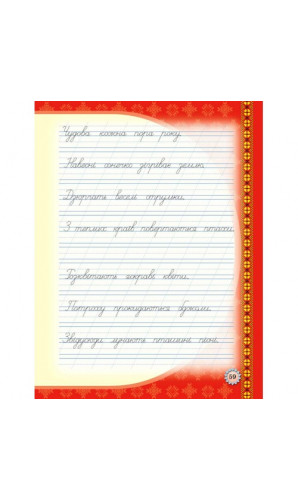 Чудова кожна пора року.
Навесні сонечко зігріває землю.
Дзюрчать веселі струмки.
З теплих країв повертаються птахи.
Розквітають яскраві квіти.
Потроху прокидаються бджоли.
Звідусюди лунають пташині пісні.
59